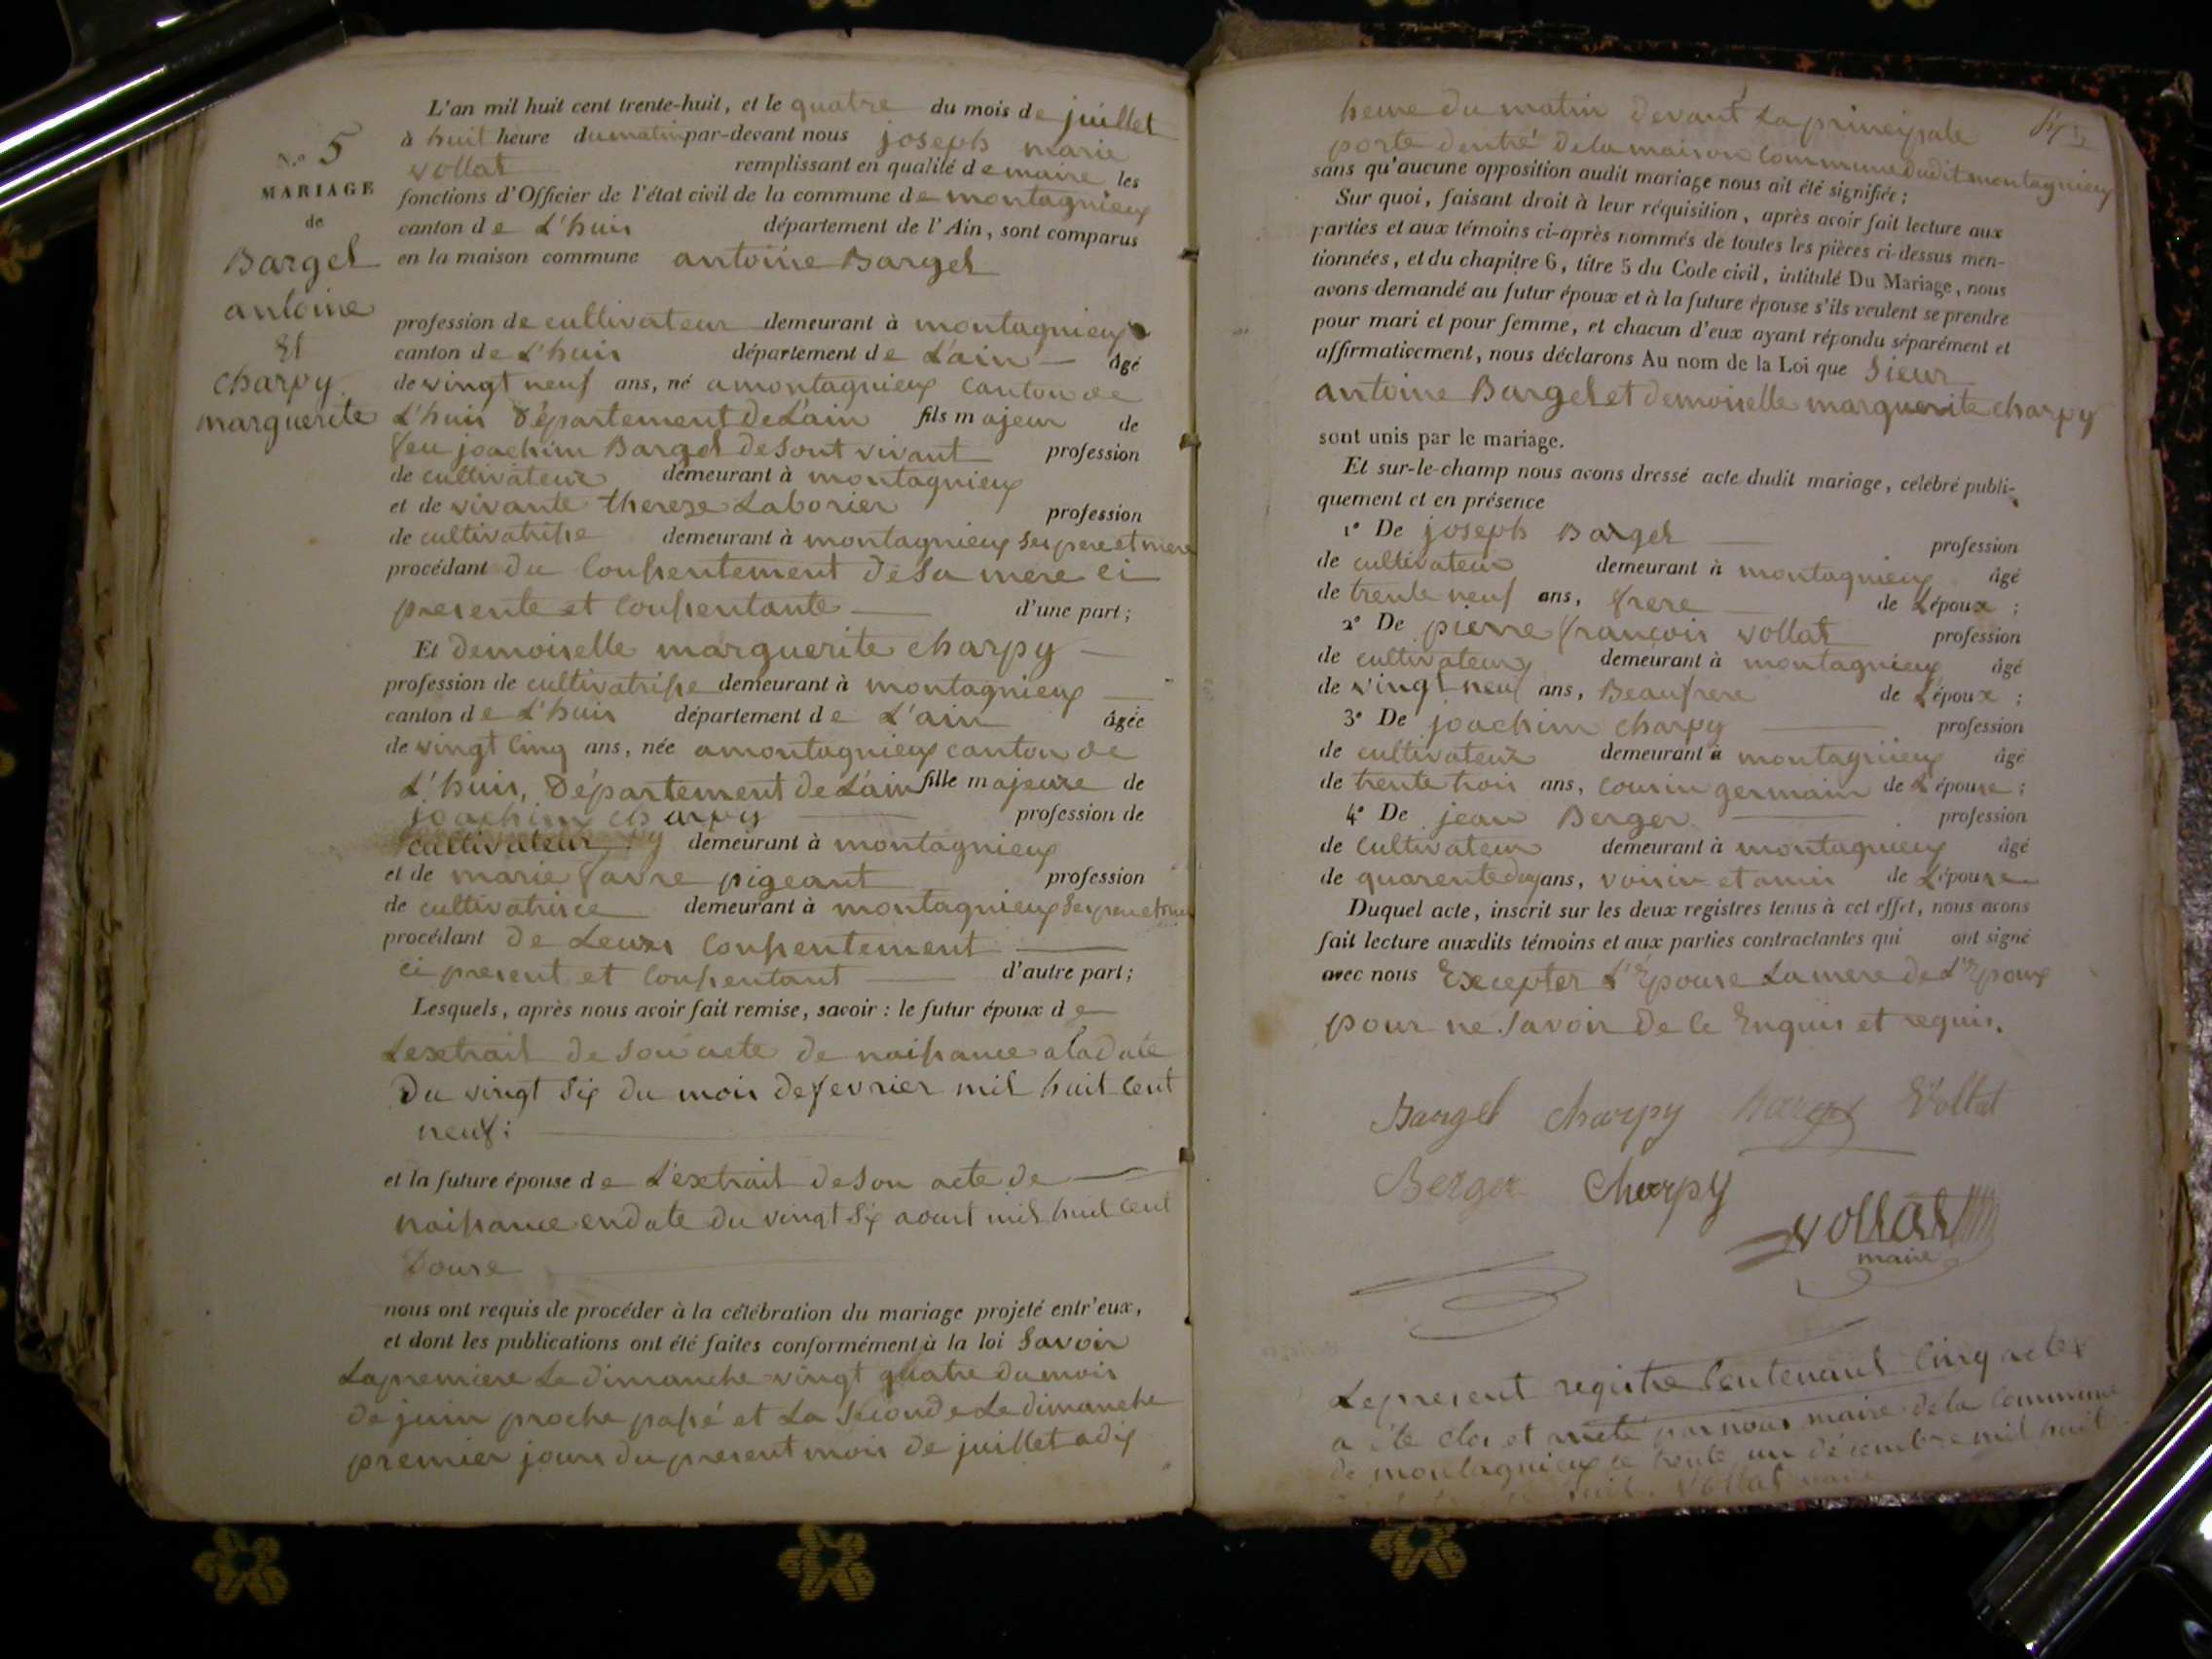 L'an mil huit cent trente-huit, et le quatre du mois de juillet
à huit heure du matin par-devant nous joseph marie
vollat remplissant en qualité de maire les
fonctions d'Officier de l'état civil de la commune de montagnieux
canton de L'huis département de l'Ain, sont comparus
en la maison commune antoine Bargel
N.o 5
MARIAGE
de
Bargel
antoine
Et
charpy
marguerite
profession de cultivateur demeurant à montagnieux
canton de L'huis département de L'ain âgé
de vingt neuf ans, né a montagnieux canton de
L'huis Département De L'ain fils majeur de
feu joachim Bargel de sont vivant profession
de cultivateur demeurant à montagnieux
et de vivante thereze Laborier profession
de cultivatrisse demeurant à montagnieux ses pere et mere
procédant du Consentement de sa mere ci
presente et Consentante d'une part;
Et demoiselle marguerite charpy
profession de cultivatrisse demeurant à montagnieux
canton de L'huis département de L'ain âgée
de vingt Cinq ans, née a montagnieux canton de
L'huis, Département De L'ain fille majeure de
joachim charpy profession de
cultivateur demeurant à montagnieux
et de marie favre pigeant profession
de cultivatrice demeurant à montagnieux ses pere et mere
procédant de Leurs Consentement
ci present et Consentant d'autre part;
Lesquels, après nous avoir fait remise, savoir : le futur époux de
L'extrait de son acte de naissance a la date
Du vingt six du mois de fevrier mil huit Cent
neuf;
et la future épouse de L'extrait de son acte de
naissance en date du vingt six aout mil huit Cent
Douse
nous ont requis de procéder à la célébration du mariage projeté entr'eux,
et dont les publications ont été faites conformément à la loi Savoir
La premiere Le dimanche vingt quatre du mois
de juin proche passé et La seconde Le dimanche
premier jours du present mois de juillet a dix
heure du matin devant La principale
porte d'entré de la maison Commune dudit montagnieux
sans qu'aucune opposition audit mariage nous ait été signifiée;
Sur quoi, faisant droit à leur réquisition, après avoir fait lecture aux
parties et aux témoins ci-après nommés de toutes les pièces ci-dessus men-
tionnées, et du chapitre 6, titre 5 du Code civil, intitulé Du Mariage, nous
avons demandé au futur époux et à la future épouse s'ils veulent se prendre
pour mari et pour femme, et chacun d'eux ayant répondu séparément et
affirmativement, nous déclarons Au nom de la Loi que Sieur
antoine Bargel et demoiselle marguerite charpy
sont unis par le mariage.
Et sur-le-champ nous avons dressé acte dudit mariage, célébré publi-
quement et en présence
1º De joseph Bargel profession
de cultivateur demeurant à montagnieux âgé
de trente neuf ans, frere de L'époux ;
2º De pierre françois vollat profession
de cultivateur demeurant à montagnieux âgé
de vingt neuf ans, Beaufrere de L'époux ;
3º De joachim charpy profession
de cultivateur demeurant à montagnieux âgé
de trente trois ans, Cousin germain de L'épouse ;
4º De jean Berger profession
de Cultivateur demeurant à montagnieux âgé
de quarente deux ans, voisin et amis de L'épouse
Duquel acte, inscrit sur les deux registres tenus à cet effet, nous avons
fait lecture auxdits témoins et aux parties contractantes qui ont signé
avec nous Excepter L'Epouse La mere de L'Epoux
pour ne savoir De Ce Enquis et requis.
Bargel charpy Bargel Vollat
Berger Charpy
vollat
maire
Le present registre Contenant Cinq actes
a été clos et par nous maire de la Commune
de montagnieux le trente un décembre mil huit
Vollat maire